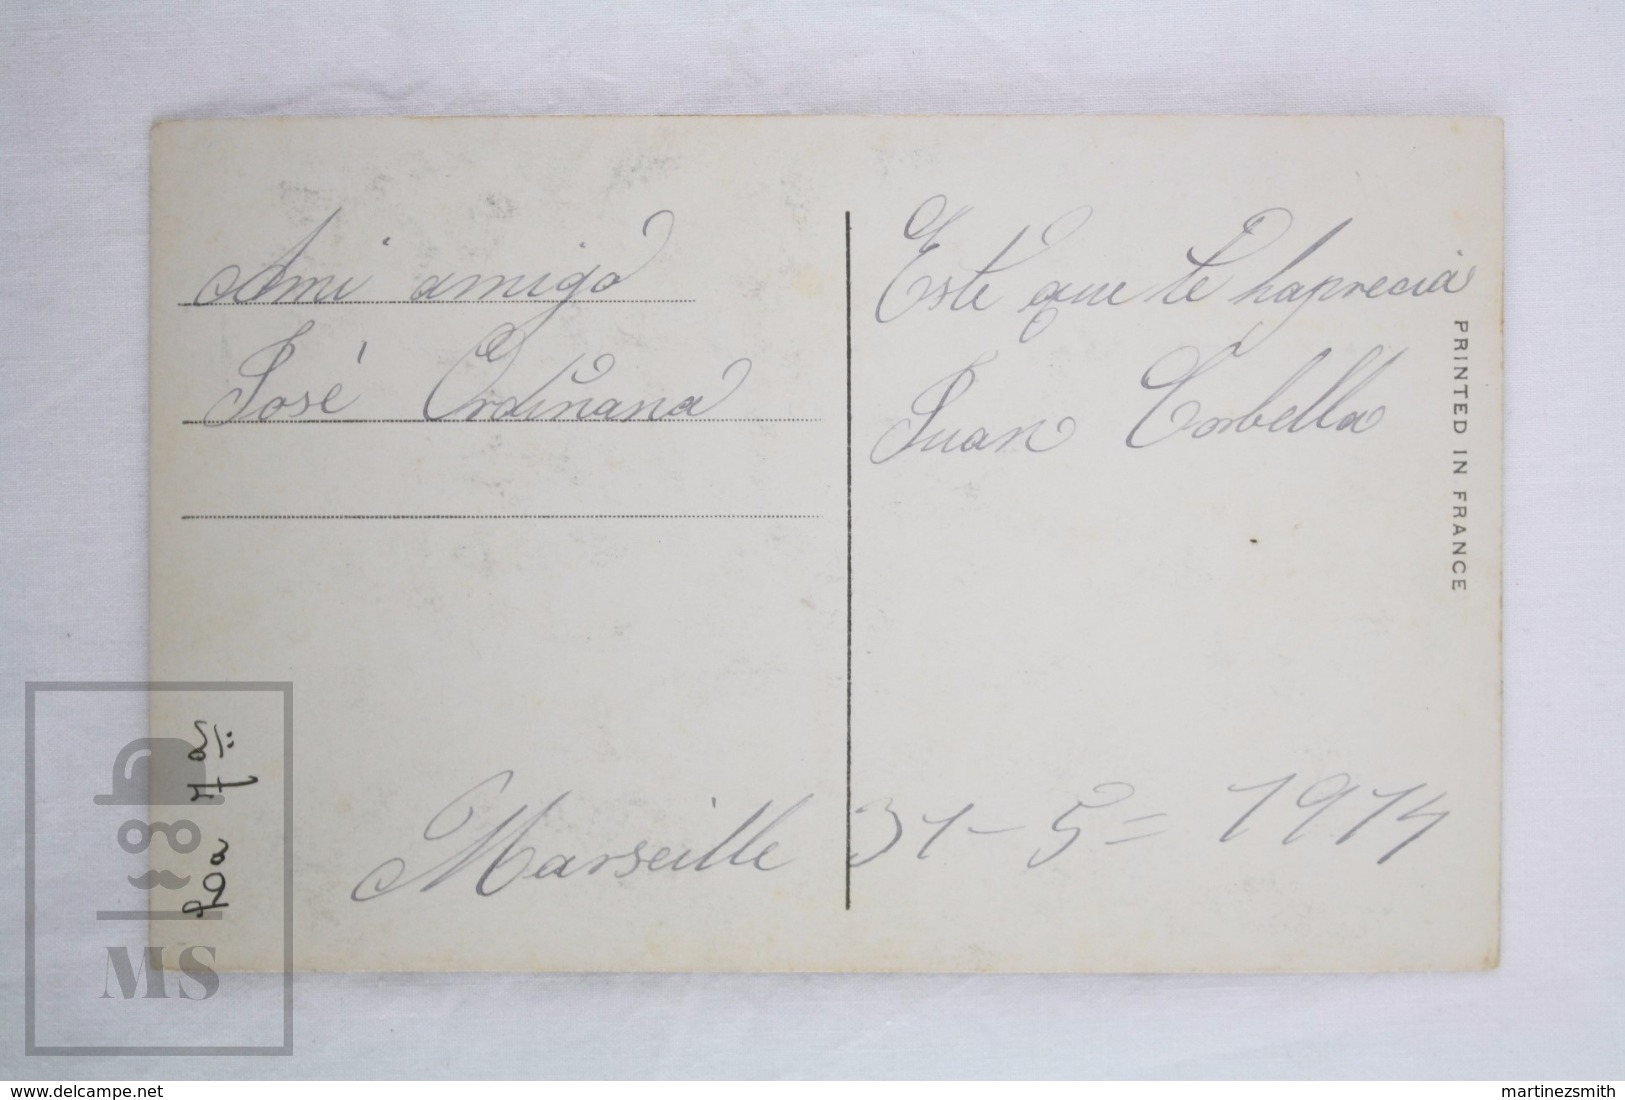 Ami amigo
José Ordinana
Este que te haprecia
Juan Corbella
Marseille 31-5=1914
PRINTED IN FRANCE
MS
www.delcampe.net
martinezsmith